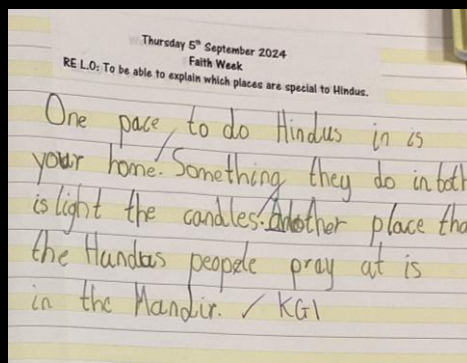 Thursday 5th September 2024
Faith Week
RE L.O: To be able to explain which places are special to Hindus.
One pace to do Hindus in is
your home. Something they do in both
is light the candles. Another place tha
the Hundas peopele pray at is
in the Mandir. ✓ KG1